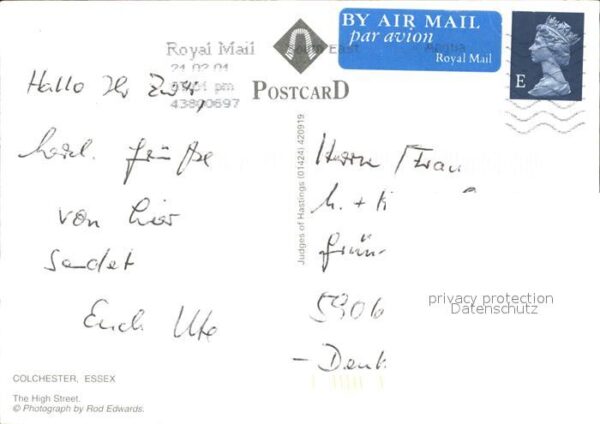 BY AIR MAIL
par avion
Royal Mail
E
Royal Mail
South East
pm
43800697
POSTCARD
Hallo Ihr Zwei,
herzl. Grüße
von hier
sendet
Euch Ute
Judges of Hastings (01424) 420919
Herrn / Frau
h. + K
Grün
5306
privacy protection
Datenschutz
COLCHESTER, ESSEX
The High Street.
© Photograph by Rod Edwards.